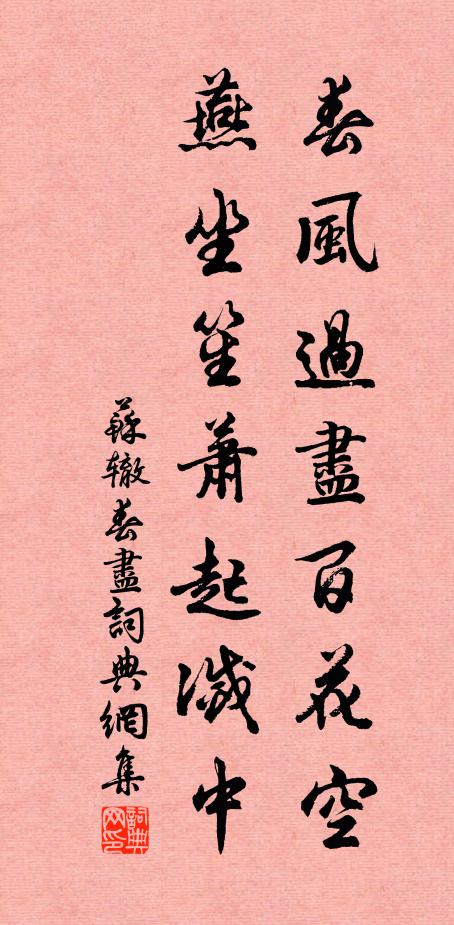 春風過盡百花空
燕坐笙蕭起滅中
蘇辙春盡詞典網集
詞典网印